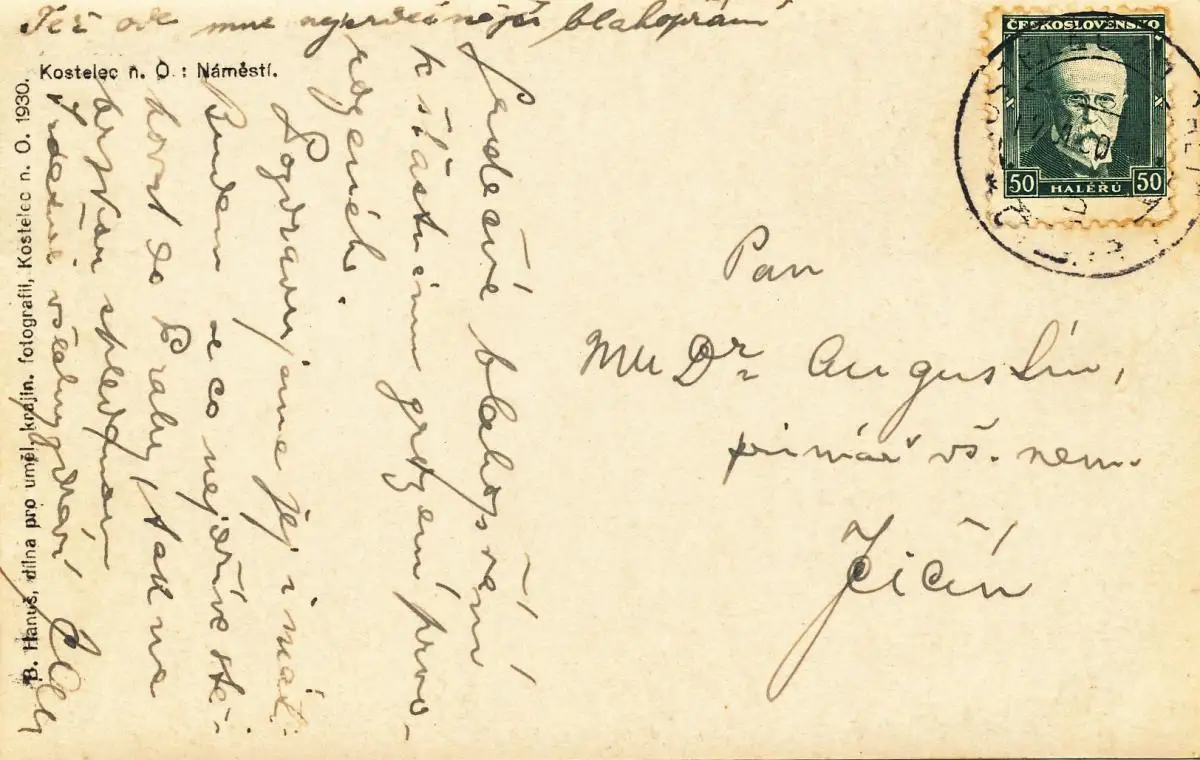 Též ode mne nejsrdečnější blahopřání
Kostelec n. O.: Náměstí.
B. Hanuš, dílna pro uměl. krajin. fotografii, Kostelec n. O. 1930.
Srdečné blahopřání
k šťastnému zrození prvo-
rozeného.
Pozdravujeme jej i mat.
Budem co nejdříve stě-
hovat do Prahy, tak na
shledanou
Srdečně všechny zdraví
ČESKOSLOVENSKO
50 HALÉŘŮ 50
Pan
MUDr Augustin,
primář vš. nem.
Jičín